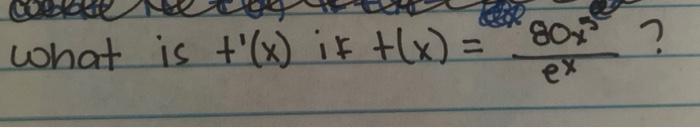 What is f'(x) if f(x) = 80x⁵/eˣ ?